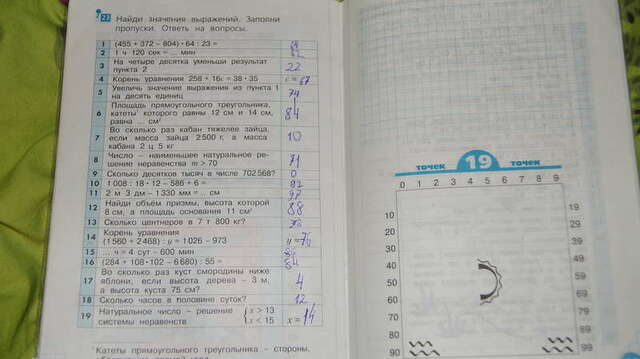 22 Найди значения выражений. Заполни
пропуски. Ответь на вопросы.
1 (455 + 372 – 804) · 64 : 23 =
2 1 ч 120 сек = ... мин
3 На четыре десятка уменьши результат
пункта 2 22
4 Корень уравнения 258 + 16c = 38 · 35 c = 67
5 Увеличь значение выражения из пункта 1
на десять единиц 74
6 Площадь прямоугольного треугольника,
катеты¹ которого равны 12 см и 14 см,
равна ... см² 84
7 Во сколько раз кабан тяжелее зайца,
если масса зайца 2 500 г, а масса
кабана 2 ц 5 кг 10
8 Число – наименьшее натуральное ре-
шение неравенства m > 70 71
9 Сколько десятков тысяч в числе 702 568? 0
10 1 008 : 18 · 12 – 586 + 6 = 92
11 2 м 3 дм – 1 330 мм = .. см
12 Найди объём призмы, высота которой
8 см, а площадь основания 11 см² 88
13 Сколько центнеров в 7 т 800 кг?
14 Корень уравнения
(1 560 + 2 468) : y = 1 026 – 973 y = 76
15 ... ч = 4 сут – 600 мин
16 (284 + 108 · 102 – 6 680) : 55 =
17 Во сколько раз куст смородины ниже
яблони, если высота дерева – 3 м,
а высота куста 75 см? 4
18 Сколько часов в половине суток? 12
19 Натуральное число – решение x > 13
системы неравенств x < 15 x = 14
¹ Катеты прямоугольного треугольника – стороны,
точек 19 точек
0 1 2 3 4 5 6 7 8 9
10 19
20 29
30 39
40 49
50 59
60 69
70 79
80 89
90 99